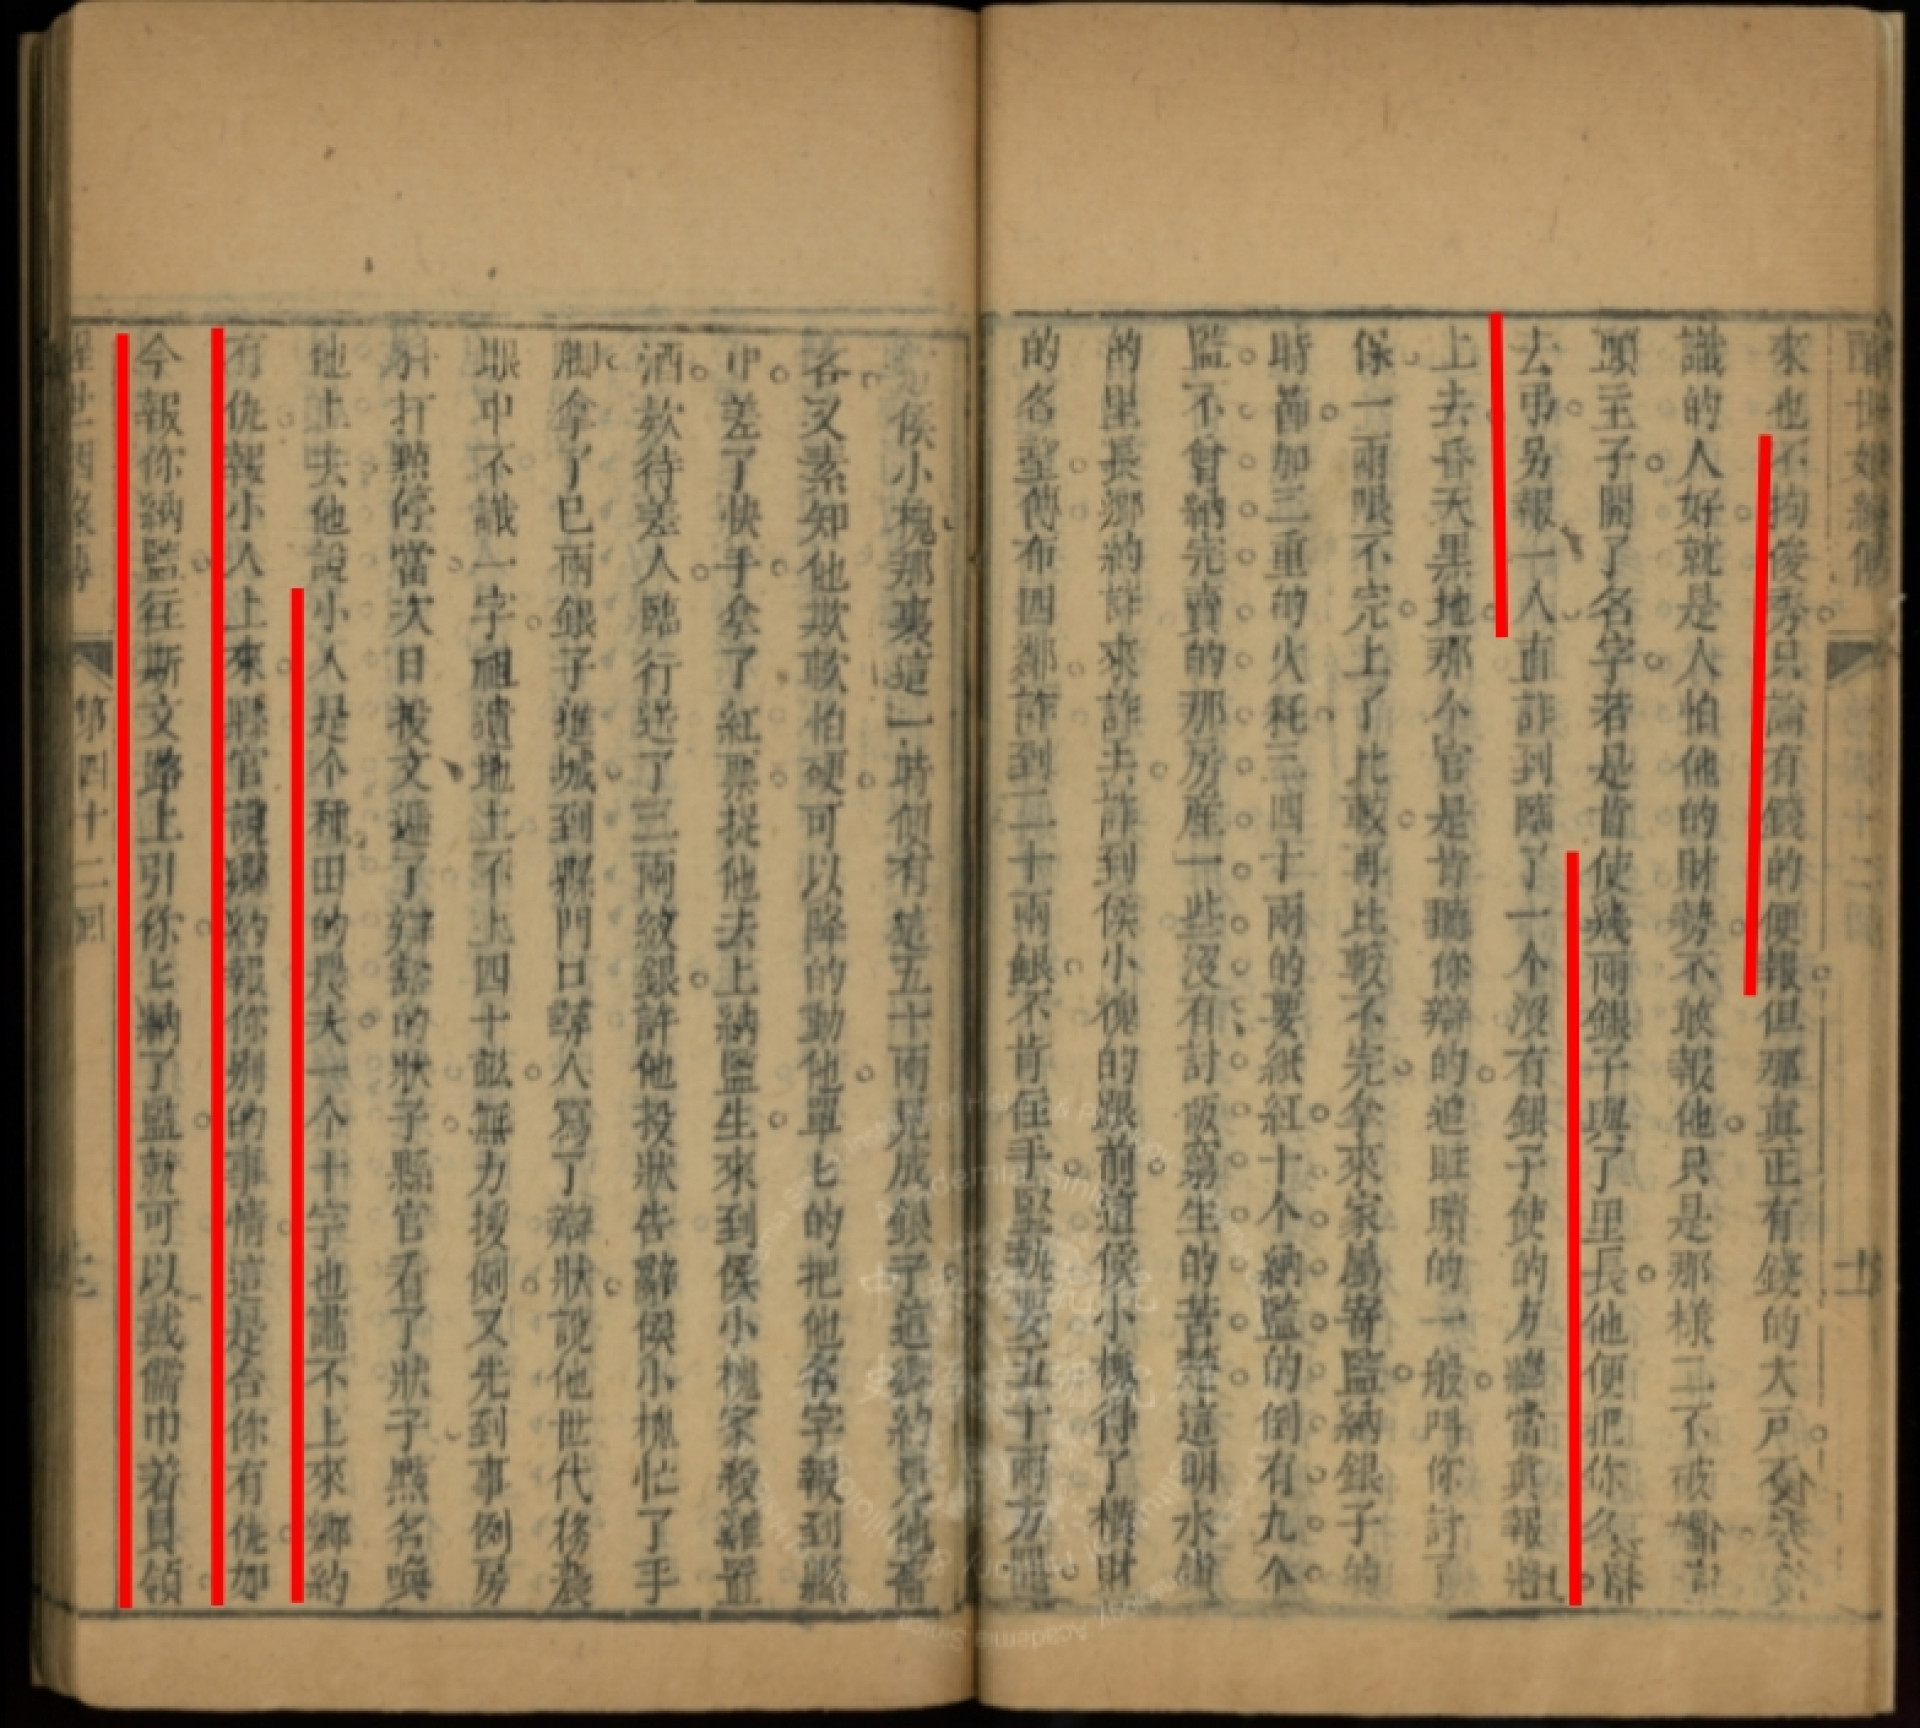 醒世姻緣傳
第四十二回
十一
來也不拘俊秀只論有錢的便報但那真正有錢的大戶
識的人好就是人怕他的財勢不敢報他只是那樣二不破
頭主子開了名字若是肯使幾兩銀子與了里長他便把你
去弔另報一人直詐到臨了一个沒有銀子使的方纔當真報將
上去昏天黑地那个官是肯聽你辯的追贓賠的一般呌你討了
保一兩限不完上了比較再比較不完拿來家屬寄監納銀子的
時節加三重的火耗三四十兩的要紙紅十个納監的倒有九个
監不曾納完賣的那房產一些沒有討飯窮生的苦楚這明水鎮
的里長鄉約詐來詐去詐到侯小槐的跟前這侯小槐得了橫財
的名望傳布四鄰詐到二十兩銀不肯住手堅執要五十兩方罷
侯小槐那裏這一時便有這五十兩見成銀子這鄉約見他
吝又素知他欺軟怕硬可以降的動他單匕的把他名字報到縣
中差了快手拿了紅票捉他去上納監生來到侯小槐家殺雞置
酒欵待差人臨行送了三兩紋銀許他投狀告辭侯小槐忙了手
脚拿了巳兩銀子進城到縣門口尋人寫了辯狀說他世代務農
眼中不識一字祖遺地土不上四十畝無力援例又先到事例房
打點停當次日投文遞了辯豁的狀子縣官看了狀子點名喚
他上去他說小人是个種田的農夫一个十字也畫不上來鄉約
有仇報小人上來縣官說鄉約報你别的事情這是合你有仇如
今報你納監往斯文路上引你匕納了監就可以戴儒巾着員領
醒世因緣傳
第四十二回